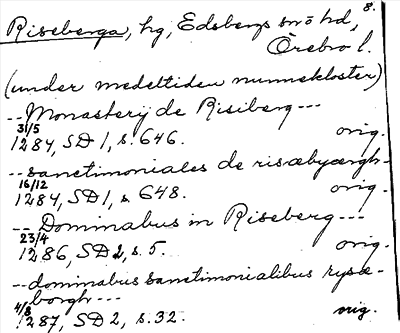 8.
Riseberga, hg, Edsbergs sn o hd,
Örebro l.
(under medeltiden nunnekloster)
-- Monasterij de Risiberg ---
31/5
1284, SD 1, s. 646. orig.
-- sanctimoniales de risæbyærgh-
16/12
1284, SD 1, s. 648. orig.
-- Dominabus in Riseberg ---
23/4
1286, SD 2, s. 5. orig.
-- dominabus sanctimonialibus rysæ-
borgh ---
4/8
1287, SD 2, s. 32. orig.